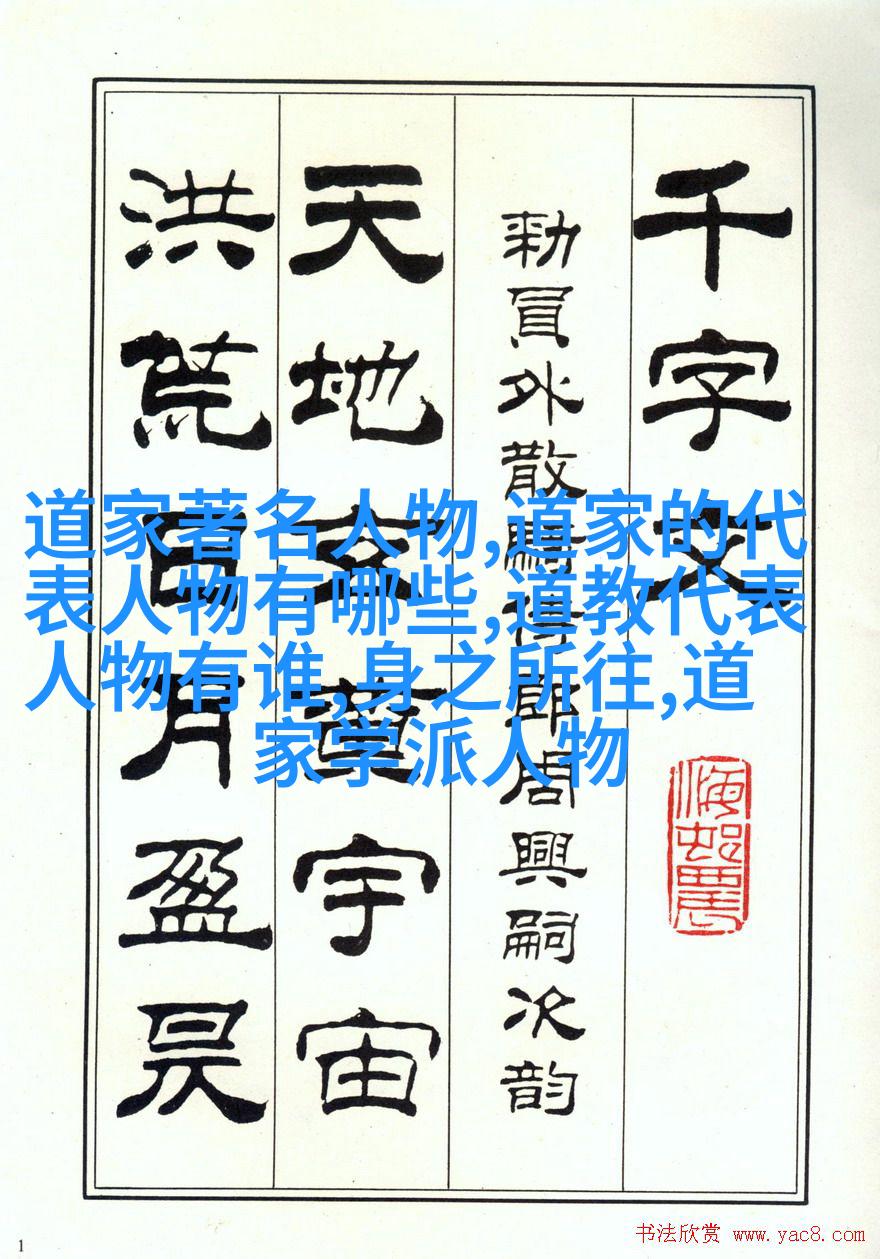 千字文
勑員外散騎侍郎周興嗣次韵
天地玄黃宇宙
洪荒日月盈昃
道家著名人物,道家的代
表人物有哪些,道教代表
人物有谁,身之所往,道
家学派人物
1
书法欣赏 www.yac8.com